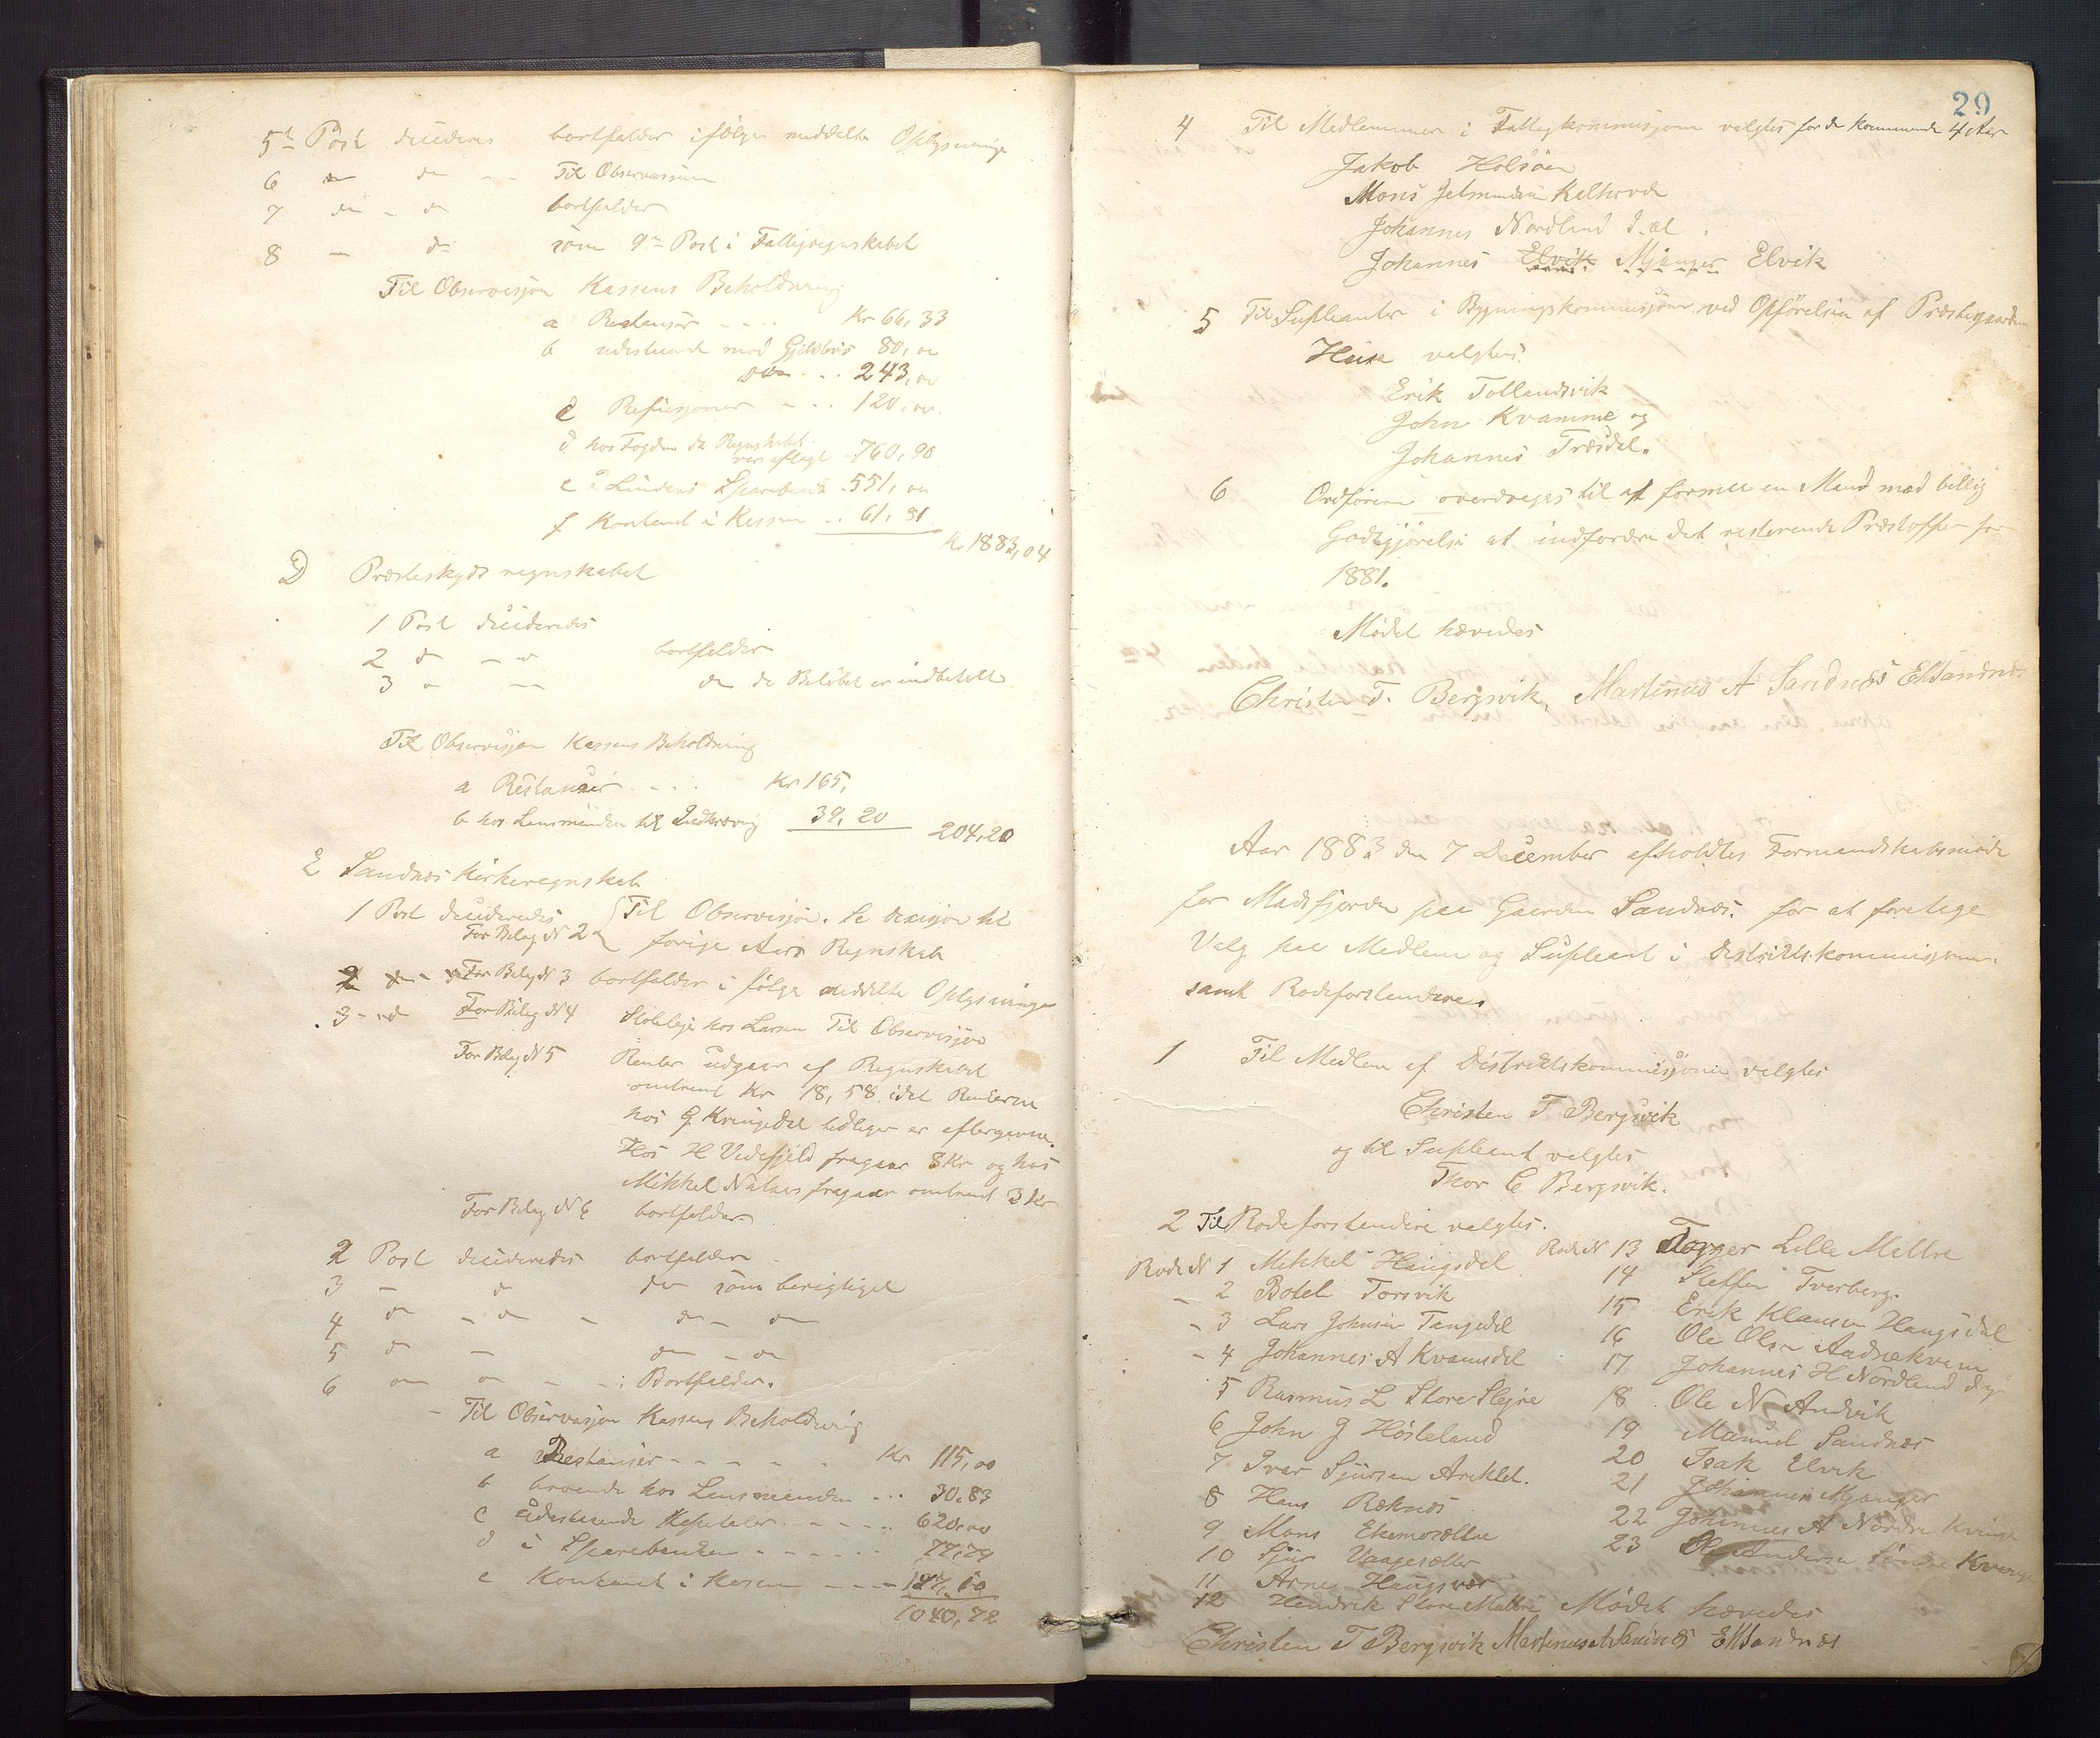 5te Post decideres bortfalder ifølge meddelte Oplysninge
6 do do - - Til Observasjon
7 do - do bortfalder
8 — do som 9de Post i Fattigregnskabet
Til Observasjon Kassens Beholdning
a Restanser - - - Kr 66,33
b udestaaende mod Gjeldbrev 80,00
do - - 243,00
c Refusjoner - - - 120,00
d hos Fogden da Regnskabet
var aflagt 760,90
e i Lindaas Sparebank 551,00
f Kontant i Kassen - - 61,81
Kr 1883,04
D Præsteskyds regnskabet
1 Post decideredes
2 do - do bortfalder
3 do — do da Beløbet er indbetalt
Til Observasjon Kassens Beholdning
a Restanser - - - Kr 165,
b hos Lensmanden til Inddrivning 39,20 204,20
E Sandnes Kirkeregnskab
1 Post decideredes
For Bilag N 2 Til Observisjon. Se decisjon til
forige Aars Regnskab
2 do - do For Bilag N 3 bortfalder i følge meddelte Oplysninger
3 - do For Bilag N 4 Stoleleje hos Larsen Til Observisjon
For Bilag N 5 Renter udgaar af Regnskabet
omtrent Kr 18,58 idet Renterne
hos G Kringedal tidligere er eftergivne.
Hos H Vedefjeld fragaar 8 Kr og hos
Mikkel Natnes fragaar omtrent 3 Kr
For Bilag N 6 bortfalder
2 Post decideredes bortfalder
3 - do do som berigtiget
4 do - do - do - do
5 do — do - do
6 do do - - : Bortfalder.
- Til Observasjon Kassens Beholdning
a Restanser - - - - - Kr 115,00
b beroende hos Lensmanden - - - 30,83
c Udestaaende Kapitaler - - - - 620,00
d i Sparebanken - - - - - - 77,79
e Kontant i Kassen - - - - 197,10
1040,72
29
4 Til Medlemmer i Fattigkommisjonen valgtes for de kommende 4 Aar
Jakob Holsøen
Mons Jetmundsen Keilegavlen
Johannes Nordland I. æl.
Johannes Elvik Mjanger Elvik
5 Til Supleanter i Bygningskommisjonen ved Opførelsen af Præstegaardens
Huse valgtes:
Erik Tollendsvik
John Kvamme og
Johannes Træsdal.
6 Ordføreren overdrages til at formaa en Mand med billig
Godtgjørelse at indfordre det resterende Præstoffer for
1881.
Mødet hævedes
Christen T. Bergsvik, Martinus A Sandnes E M Sandnes
Aar 1883 den 7 December afholdtes Formandskabsmøde
for Masfjorden paa Gaarden Sandnes. for at foretage
Valg paa Medlem og Supleant i Distriktskommisjonen
samt Rodeforstandere.
1 Til Medlem af Distriktskommisjonen valgtes
Christen T Bergsvik
og til Supleant valgtes
Thor C Bergsvik.
2 Til Rodeforstandere valgtes.
Rode N 1 Mikkel Haugsdal
- 2 Botel Torsvik
- 3 Lars Johnsen Tangedal
- 4 Johannes A Kvamsdal
5 Rasmus L Store Sleire
6 John J Høsteland
7 Iver Sjursen
8 Hans Reknes
9 Mons Ekemosætter
10 Sjur Vaagesæter
11 Arne Haugsvær
12 Hendrik Store Matre
Rode N 13 Torger Lille Matre
14 Steffen Tverberg.
15 Erik Klausen Haugsdal
16 Ole Olsen Andvakvam
17 Johannes H Nordland
18 Ole N Andvik
19 Manuel Sandnes
20 Isak Elvik
21 Johannes Mjanger
22 Johannes A Nordre Kvinge
23 Ole Andersen Søndre Kvinge
Mødet hævedes
Christen T Bergsvik Martinus A Sandnes E M Sandnes